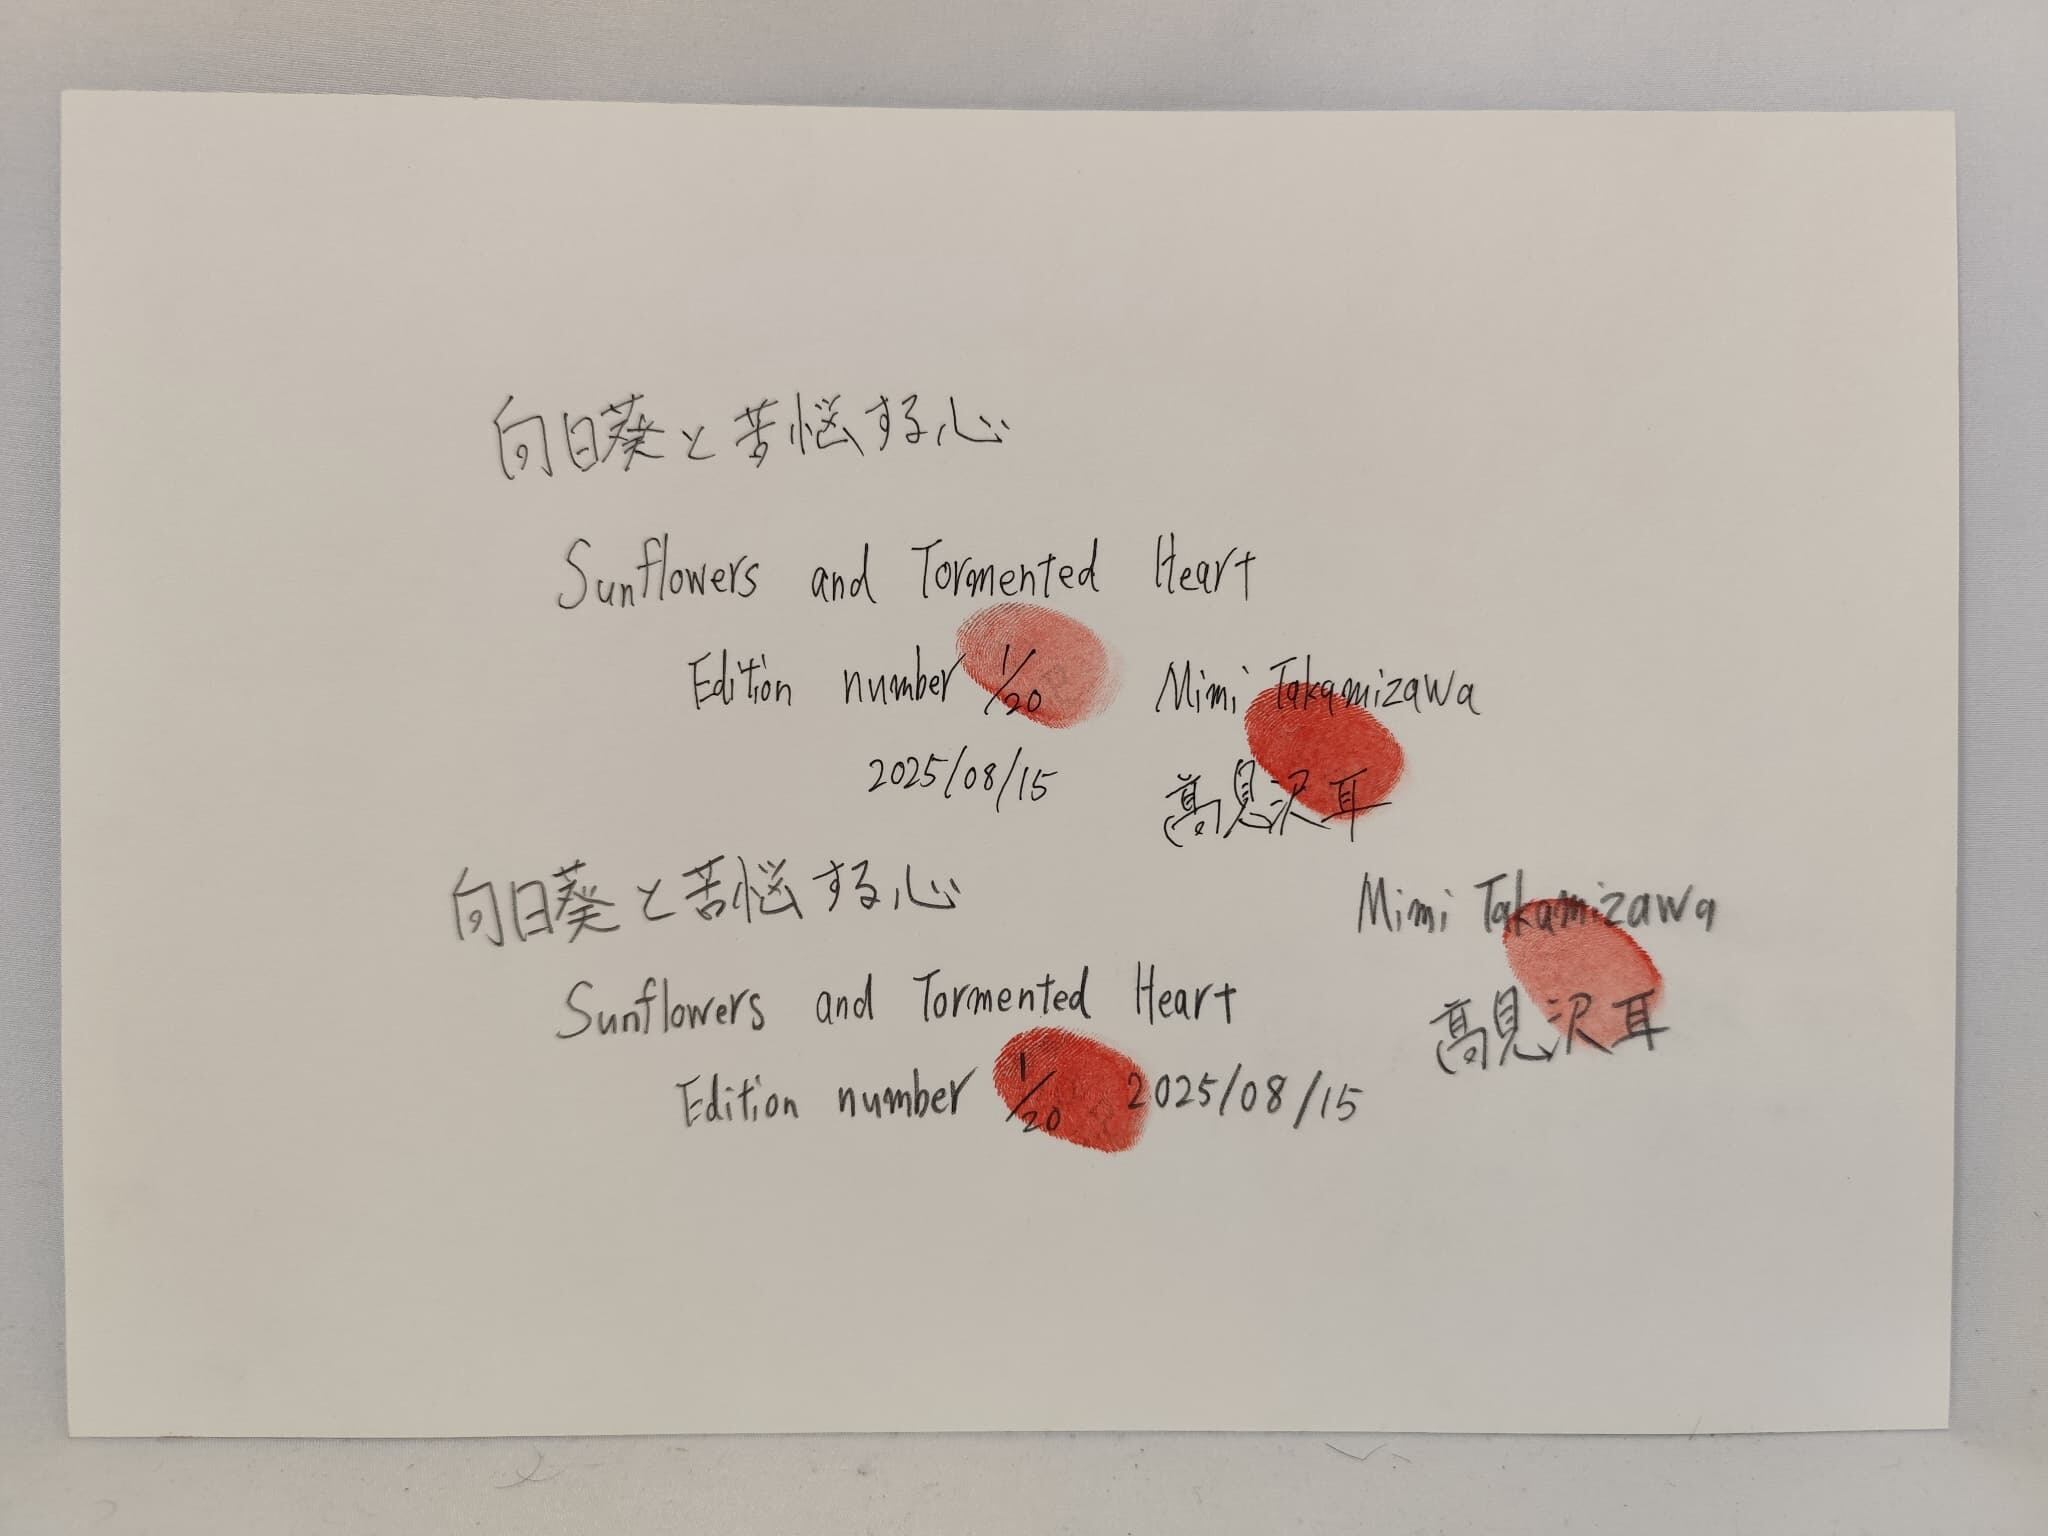 向日葵と苦悩する心
Sunflowers and Tormented Heart
Edition number 1/20 Mimi Takamizawa
2025/08/15 髙見沢耳
向日葵と苦悩する心
Mimi Takamizawa
Sunflowers and Tormented Heart
髙見沢耳
Edition number 1/20 2025/08/15